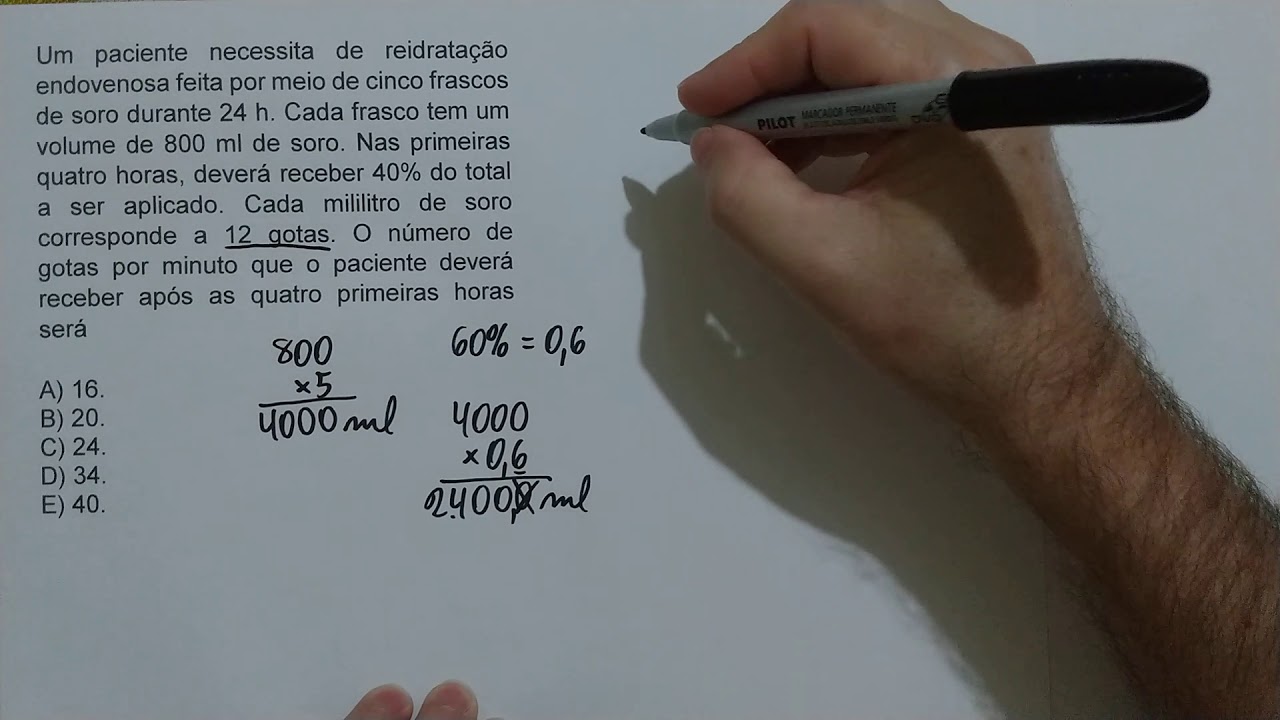 Um paciente necessita de reidratação
endovenosa feita por meio de cinco frascos
de soro durante 24 h. Cada frasco tem um
volume de 800 ml de soro. Nas primeiras
quatro horas, deverá receber 40% do total
a ser aplicado. Cada mililitro de soro
corresponde a 12 gotas. O número de
gotas por minuto que o paciente deverá
receber após as quatro primeiras horas
será
A) 16.
B) 20.
C) 24.
D) 34.
E) 40.
800
×5
4000 ml
60% = 0,6
4000
× 0,6
2.400,0 ml
PILOT MARCADOR PERMANENTE